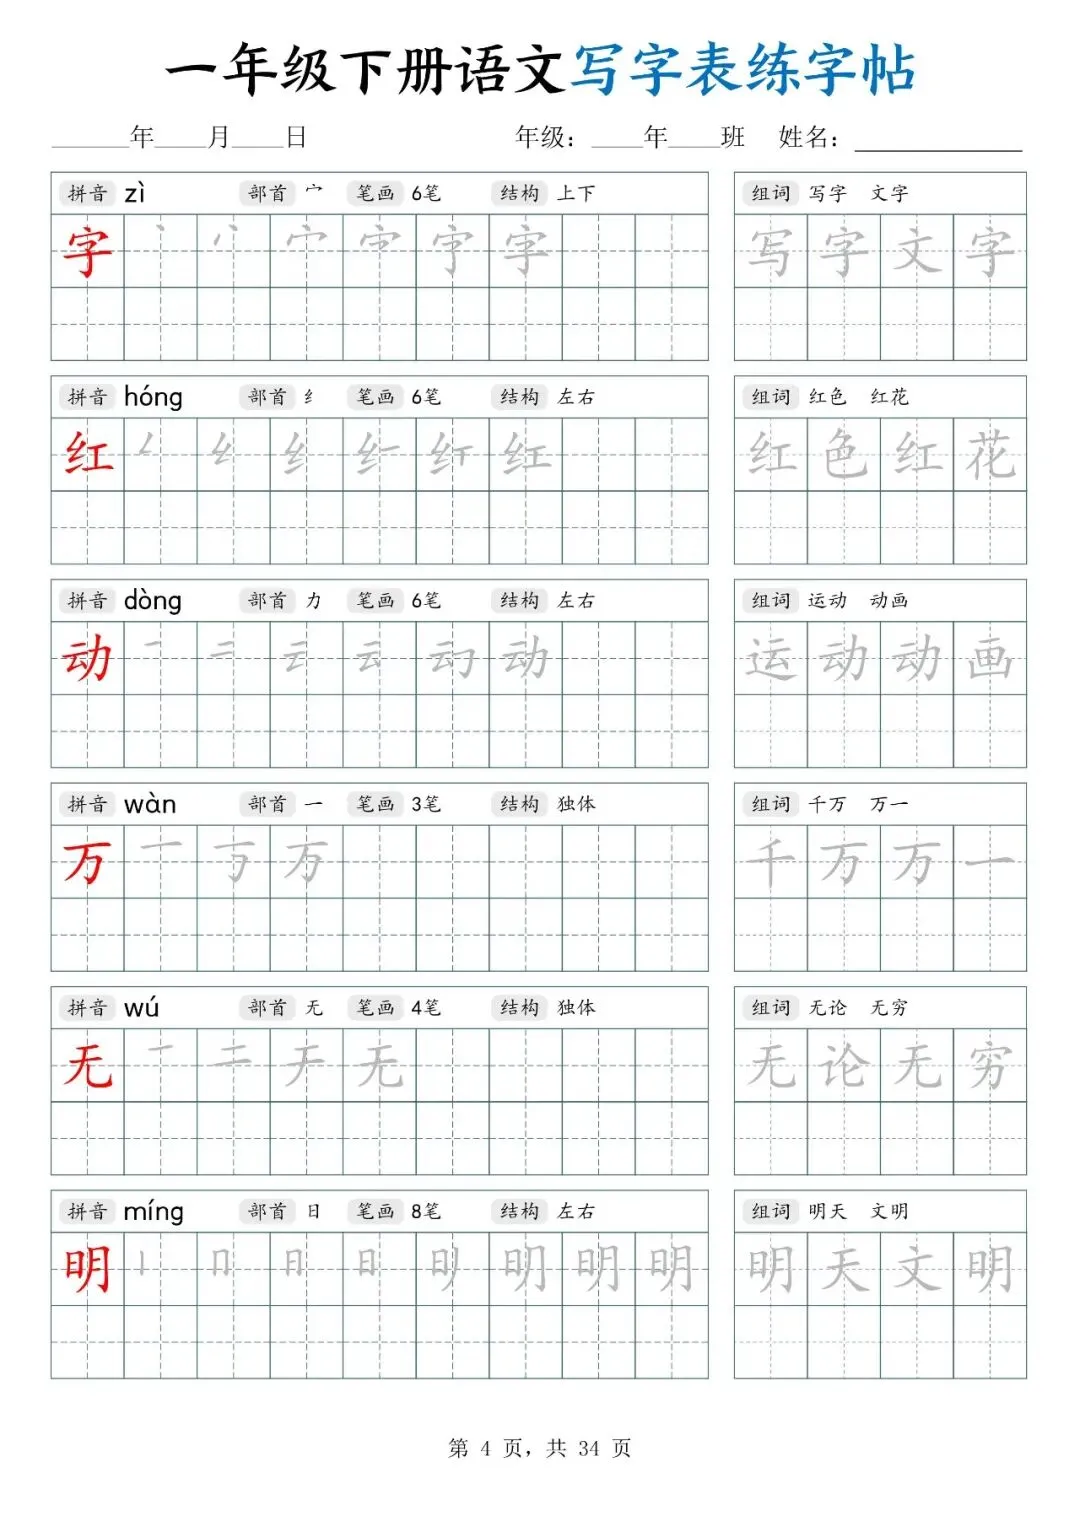 一年级下册语文写字表练字帖
______年____月____日 年级：____年____班 姓名：_____________
拼音 zì 部首 宀 笔画 6笔 结构 上下 组词 写字 文字
字 丶 丷 宀 字 字 写字文字
拼音 hóng 部首 纟 笔画 6笔 结构 左右 组词 红色 红花
红 纟 红 红色红花
拼音 dòng 部首 力 笔画 6笔 结构 左右 组词 运动 动画
动 一 二 云 动 运动动画
拼音 wàn 部首 一 笔画 3笔 结构 独体 组词 千万 万一
万 一 丆 万 千万万一
拼音 wú 部首 无 笔画 4笔 结构 独体 组词 无论 无穷
无 一 二 无 无论无穷
拼音 míng 部首 日 笔画 8笔 结构 左右 组词 明天 文明
明 丨 冂 日 日 明 明 明天文明
第 4 页，共 34 页